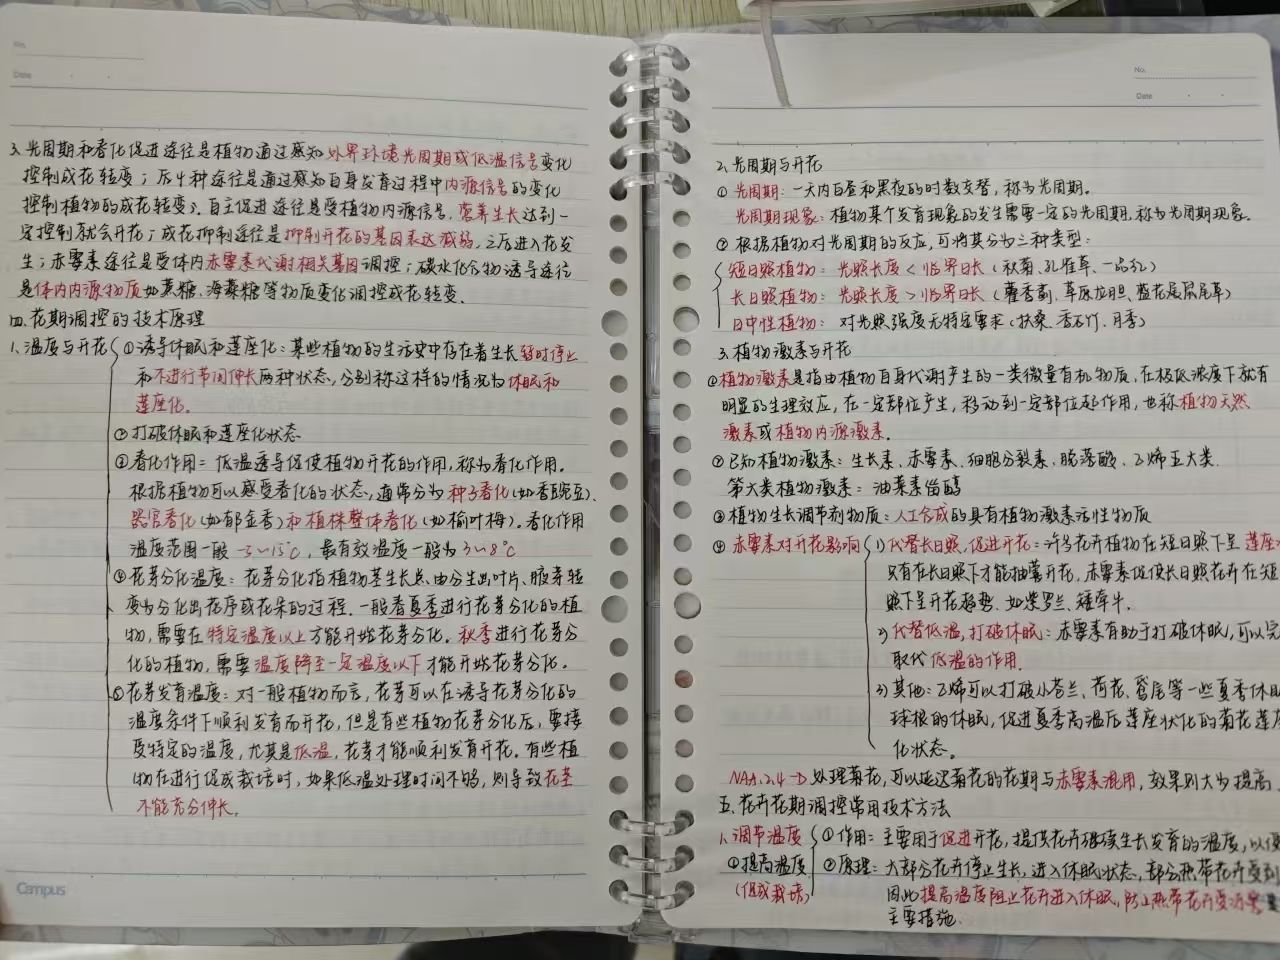 No.
Date
3. 光周期和春化促进途径是植物通过感知外界环境光周期或低温信号变化
控制成花转变；后4种途径是通过感知自身发育过程中内源信号的变化
控制植物的成花转变。自主促进途径是受植物内源信号,营养生长达到一
定控制就会开花；成花抑制途径是抑制开花的基因表达减弱,之后进入花发
生；赤霉素途径是受体内赤霉素代谢相关基因调控；碳水化合物诱导途径
是体内内源物质如蔗糖、海藻糖等物质变化调控成花转变、
四、花期调控的技术原理
1.温度与开花 ①诱导休眠和莲座化：某些植物的生活史中存在着生长暂时停止
和不进行节间伸长两种状态，分别称这样的情况为休眠和
莲座化。
②打破休眠和莲座化状态
③春化作用：低温诱导促使植物开花的作用，称为春化作用。
根据植物可以感受春化的状态，通常分为种子春化(如香豌豆)、
器官春化(如郁金香)和植株整体春化(如榆叶梅)。春化作用
温度范围一般-5~15℃，最有效温度一般为3~8℃
④花芽分化温度：花芽分化指植物茎生长点由分生出叶片、腋芽转
变为分化出花序或花朵的过程.一般春夏季进行花芽分化的植
物,需要在特定温度以上才能开始花芽分化。秋季进行花芽分
化的植物,需要温度降至一定温度以下才能开始花芽分化。
⑤花芽发育温度：对一般植物而言,花芽可以在诱导花芽分化的
温度条件下顺利发育而开花，但是有些植物花芽分化后，要接
受特定的温度，尤其是低温，花芽才能顺利发育开花。有些植
物在进行促成栽培时,如果低温处理时间不够,则导致花茎
不能充分伸长。
Campus
No.
Date
2.光周期与开花
①光周期：一天内白昼和黑夜的时数交替，称为光周期。
光周期现象：植物某个发育现象的发生需要一定的光周期,称为光周期现象。
②根据植物对光周期的反应,可将其分为三种类型：
短日照植物：光照长度<临界日长(秋菊、孔雀草、一品红)
长日照植物：光照长度>临界日长(藿香蓟、草原龙胆、蓝花鼠尾草)
日中性植物：对光照强度无特定要求(扶桑、香石竹、月季)
3.植物激素与开花
①植物激素是指由植物自身代谢产生的一类微量有机物质,在极低浓度下就有
明显的生理效应，在一定部位产生，移动到一定部位起作用，也称植物天然
激素或植物内源激素.
②已知植物激素：生长素、赤霉素、细胞分裂素、脱落酸、乙烯五大类.
第六类植物激素：油菜素甾醇
③植物生长调节剂物质：人工合成的具有植物激素活性物质
④赤霉素对开花影响 1)代替长日照,促进开花：许多花卉植物在短日照下呈莲座
只有在长日照下才能抽薹开花,赤霉素促使长日照花卉在短
照下呈开花趋势.如紫罗兰、矮牵牛.
2)代替低温,打破休眠：赤霉素有助于打破休眠,可以完
取代低温的作用.
3)其他：乙烯可以打破小苍兰、荷花、鸢尾等一些夏季休眠
球根的休眠,促进夏季高温后莲座状化的菊花莲座
化状态。
NAA.2,4-D处理菊花,可以延迟菊花的花期与赤霉素混用,效果则大为提高
五、花卉花期调控常用技术方法
1.调节温度 ①作用：主要用于促进开花,提供花卉继续生长发育的温度,以便
①提高温度 ②原理：大部分花卉停止生长,进入休眠状态,部分热带花卉受到
(促成栽培) 因此提高温度阻止花卉进入休眠,防止热带花卉受冻害是
主要措施.